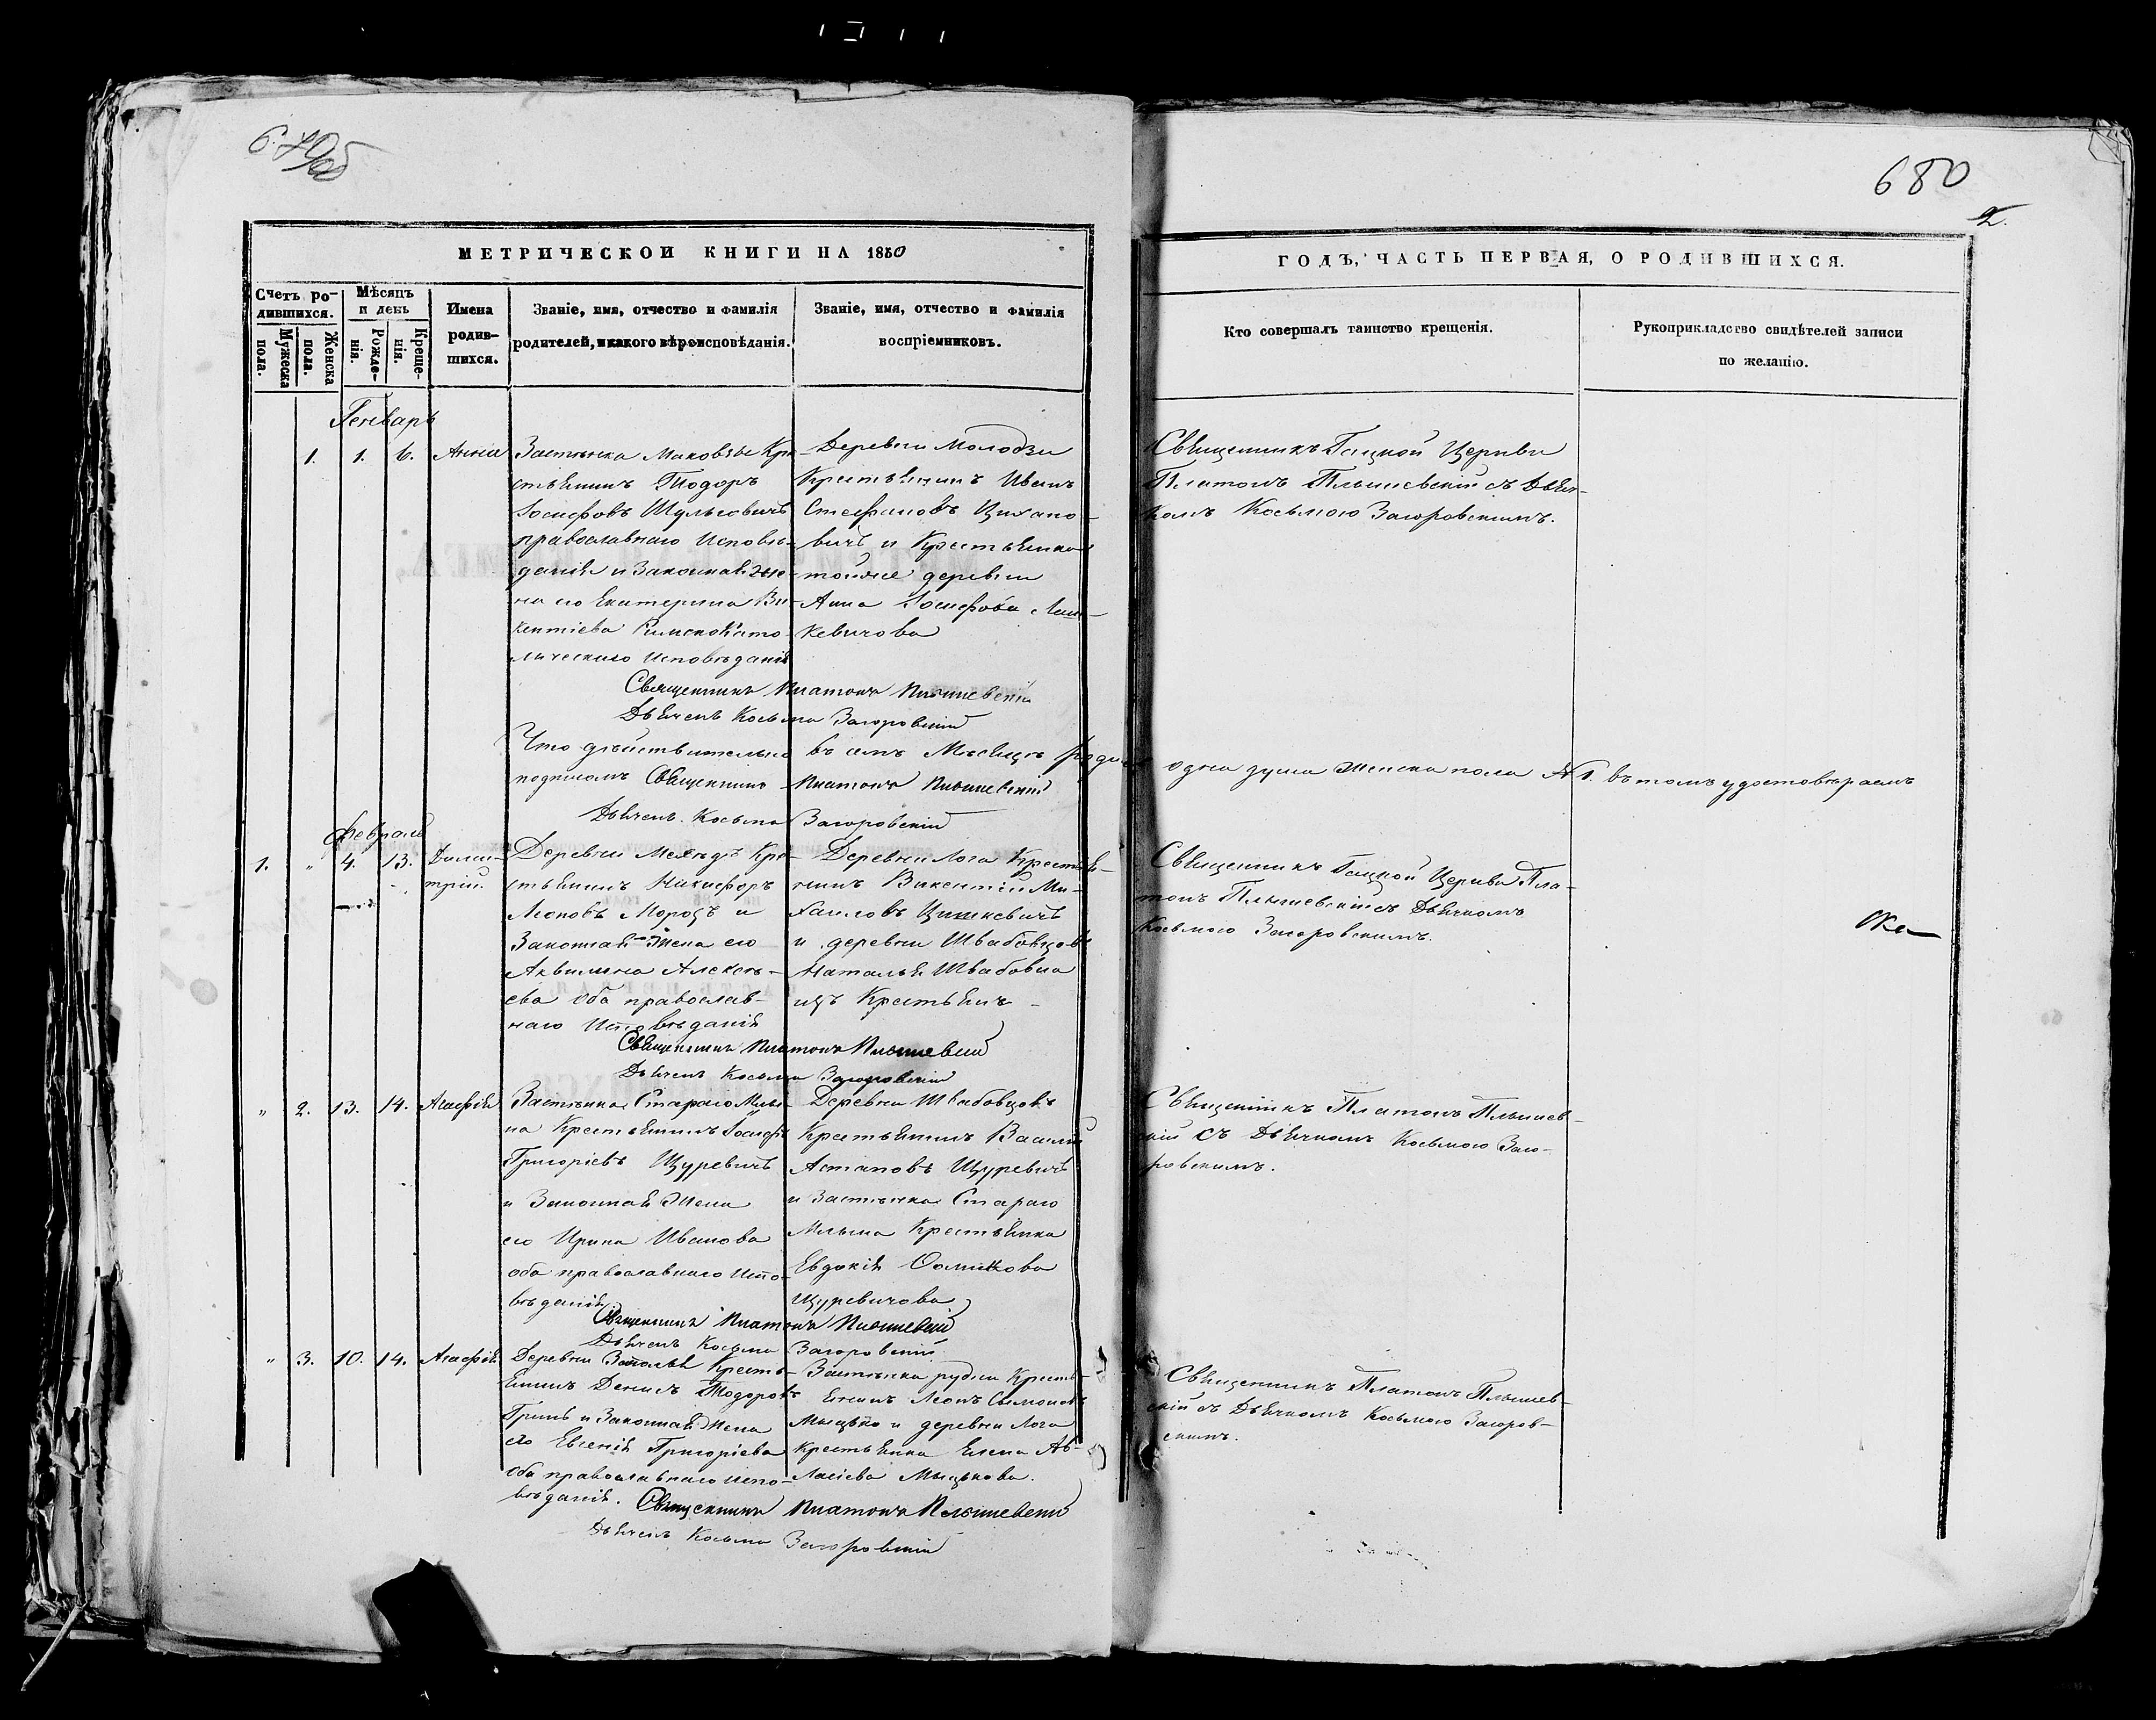 679об
680
2.
МЕТРИЧЕСКОЙ КНИГИ НА 1850
ГОДЪ, ЧАСТЬ ПЕРВАЯ, О РОДИВШИХСЯ.
Счетъ ро-
дившихся.
Мужеска
пола.
Женска
пола.
Мѣсяцъ
и день
Рожде-
нія.
Креще-
нія.
Имена
родив-
шихся.
Званіе, имя, отчество и фамилія
родителей, и какого вѣроисповѣданія.
Званіе, имя, отчество и фамилія
воспріемниковъ.
Кто совершалъ таинство крещенія.
Рукоприкладство свидѣтелей записи
по желанію.
Генварь
1. 1. 6. Анна
Застѣнка Маковзы Кре
стьянинъ Тодоръ
Іосифовъ Шульговичъ
православнаго исповѣ-
данія и законная же-
на его Екатерина Ви-
кентіева Римскокато-
лическаго исповѣданія
Деревни Молодзи
Крестьянинъ Иванъ
Стефановъ Цихано-
вичъ и Крестьянка
тойже деревни
Анна Іосифова
кевичова
Священникъ Гацкой Церкви
Платонъ Плышевскій съ Дьяч-
комъ Косьмою Загоровскимъ.
Священникъ Платонъ Плышевскій
Дьячекъ Косьма Загоровскій
Что дѣйствительно въ семъ Мѣсяцѣ одна душа женска пола № 1. въ томъ удостовѣряемъ
подписомъ Священникъ Платонъ Плышевскій
Дьячекъ Косьма Загоровскій
Февраль
1. „ 4. 13. Дими-
трій.
Деревни Кре-
стьянинъ Никифоръ
Леоновъ Морозъ и
Законная жена его
Аквилина Алексѣ-
ева оба православ-
наго исповѣданія
Деревни Лога Крестья-
нинъ Викентій Ми-
хаиловъ Цишкевичъ
и деревни Швабовцовъ
Наталья Швабовна
изъ Крестьянъ
Священникъ Гацкой Церкви Пла-
тонъ Плышевскій съ Дьячкомъ
Косьмою Загоровскимъ.
Священникъ Платонъ Плышевскій
Дьячекъ Косьма Загоровскій
„ 2. 13. 14. Агафія
Застѣнка Стараго Млы-
на Крестьянинъ Іосифъ
Григоріевъ Щуревичъ
и Законная Жена
его Ирина Иванова
оба православнаго испо-
вѣданія
Деревни Швабовцовъ
Крестьянинъ Василій
Астаповъ Щуревичъ
и Застѣнка Стараго
Млына Крестьянка
Евдокія
Щуревичова
Священникъ Платонъ Плышев-
скій съ Дьячкомъ Косьмою Заго-
ровскимъ.
Священникъ Платонъ Плышевскій
Дьячекъ Косьма Загоровскій
„ 3. 10. 14. Агафія
Деревни Заполья Кресть-
янинъ Денисъ Тодоровъ
Гринь и Законная Жена
его Евгенія Григоріева
оба православнаго испо-
вѣданія.
Застѣнка рудни Кресть-
янинъ Леонъ Сымоновъ
Мыцько и деревни Лога
крестьянка Елена Ав-
ласіева Мыцькова.
Священникъ Платонъ Плышев-
скій съ Дьячкомъ Косьмою Загоров-
скимъ.
Священникъ Платонъ Плышевскій
Дьячекъ Косьма Загоровскій